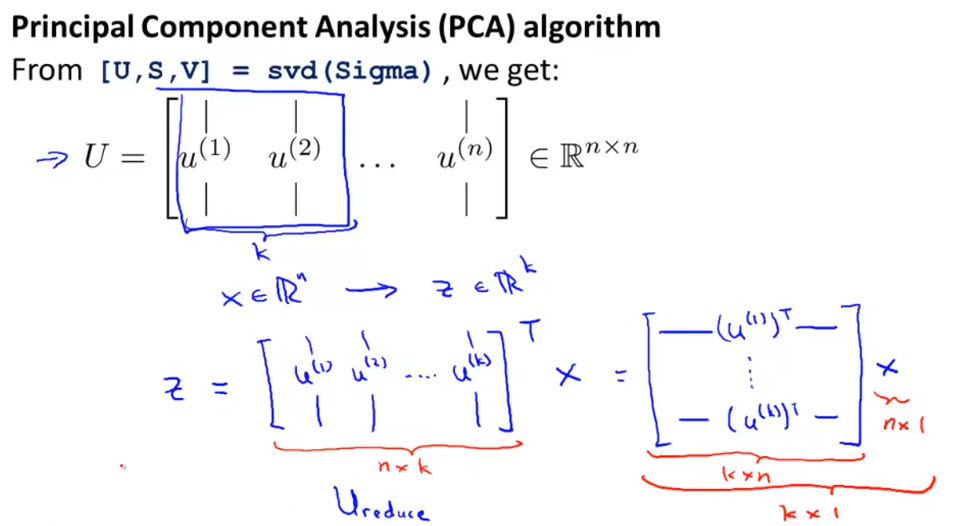 Principal Component Analysis (PCA) algorithm
From [U,S,V] = svd(Sigma), we get:
→ U = [ | | | u^(1) u^(2) ... u^(n) | | | ] ∈ ℝ^{n×n}
k
x ∈ ℝ^n → z ∈ ℝ^k
z = [ | | | u^(1) u^(2) .... u^(k) | | | ]^T x = [ — (u^(1))^T — ⋮ — (u^(k))^T — ] x
n × k
k × n
n × 1
k × 1
U_reduce